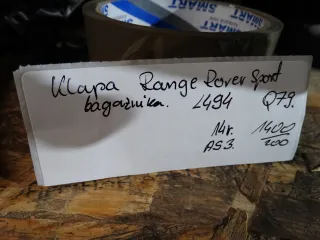 SMART
SMART
Klapa Range Rover Sport
bagażnika. L494 Q79.
14r. 1400
AS3. 200